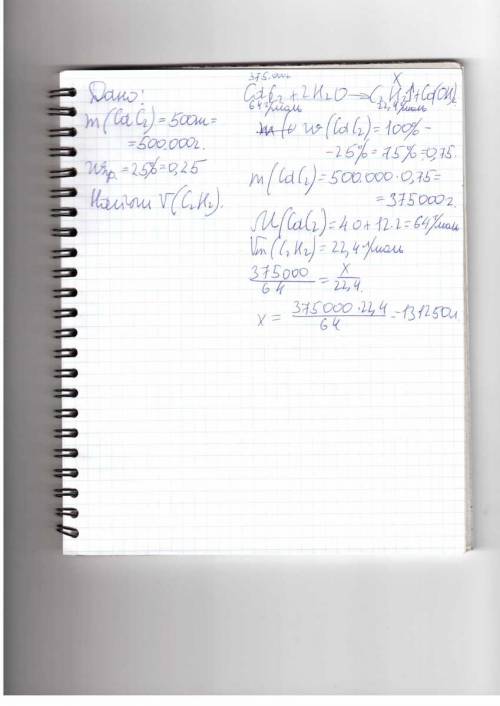 Дано:
m(CaC₂) = 500т =
= 500.000г.
wпр. = 25% = 0,25
Найти V(C₂H₂).
375.000 x
CaC₂ + 2H₂O → C₂H₂↑ + Ca(OH)₂
64г/моль 22,4л/моль
w(CaC₂) = 100% -
- 25% = 75% = 0,75.
m(CaC₂) = 500.000 · 0,75 =
= 375000г.
M(CaC₂) = 40 + 12·2 = 64г/моль
Vm(C₂H₂) = 22,4л/моль
375000/64 = x/22,4
x = 375000·22,4/64 = 131250л